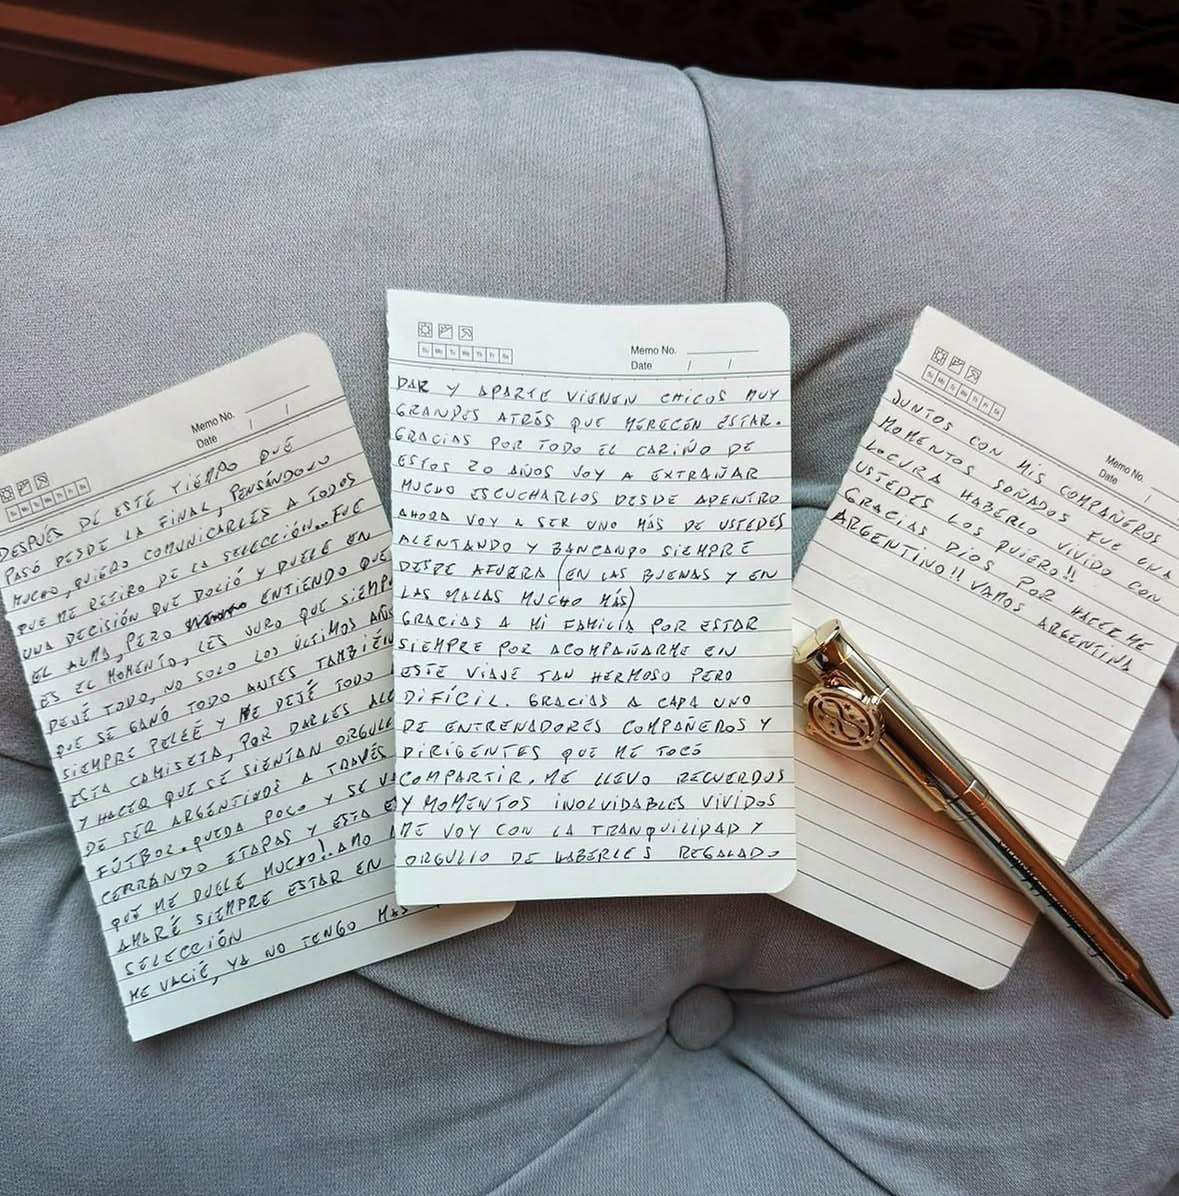 Memo No.
Date / /
DESPUÉS DE ESTE TIEMPO QUE
PASÓ DESDE LA FINAL, PENSÁNDOLO
MUCHO, QUIERO COMUNICARLES A TODOS
QUE ME RETIRO DE LA SELECCIÓN... FUE
UNA DECISIÓN QUE DOLIÓ Y DUELE EN
EL ALMA, PERO ENTIENDO QUE
ES EL MOMENTO, LES JURO QUE
DEJÉ TODO, NO SOLO LOS ÚLTIMOS AÑOS
QUE SE GANÓ TODO ANTES TAMBIÉN
SIEMPRE PELEÉ Y ME DEJÉ TODO
ESTA CAMISETA, POR DARLES
Y HACER QUE SE SIENTAN
DE SER ARGENTINOS A TRAVÉS
FÚTBOL. QUEDA POCO Y SE
CERRANDO ETAPAS Y ESTA
QUE ME DUELE MUCHO! AMO
AMARÉ SIEMPRE ESTAR EN
SELECCIÓN
ME VACIÉ, YA NO TENGO MÁS
Su Mo Tu We Th Fr Sa
Memo No.
Date / /
DAR Y APARTE VIENEN CHICOS MUY
GRANDES ATRÁS QUE MERECEN ESTAR.
GRACIAS POR TODO EL CARIÑO DE
ESTOS 20 AÑOS VOY A EXTRAÑAR
MUCHO ESCUCHARLOS DESDE ADENTRO
AHORA VOY A SER UNO MÁS DE USTEDES
ALENTANDO Y BANCANDO SIEMPRE
DESDE AFUERA (EN LAS BUENAS Y EN
LAS MALAS MUCHO MÁS)
GRACIAS A MI FAMILIA POR ESTAR
SIEMPRE POR ACOMPAÑARME EN
ESTE VIAJE TAN HERMOSO PERO
DIFÍCIL. GRACIAS A CADA UNO
DE ENTRENADORES COMPAÑEROS Y
DIRIGENTES QUE ME TOCÓ
COMPARTIR. ME LLEVO RECUERDOS
Y MOMENTOS INOLVIDABLES VIVIDOS
ME VOY CON LA TRANQUILIDAD Y
ORGULLO DE HABERLES REGALADO
Su Mo Tu We Th Fr Sa
Memo No.
Date /
JUNTOS CON MIS COMPAÑEROS
MOMENTOS SOÑADOS FUE UNA
LOCURA HABERLO VIVIDO CON
USTEDES LOS QUIERO!!
GRACIAS DIOS POR HACERME
ARGENTINO!! VAMOS
ARGENTINA